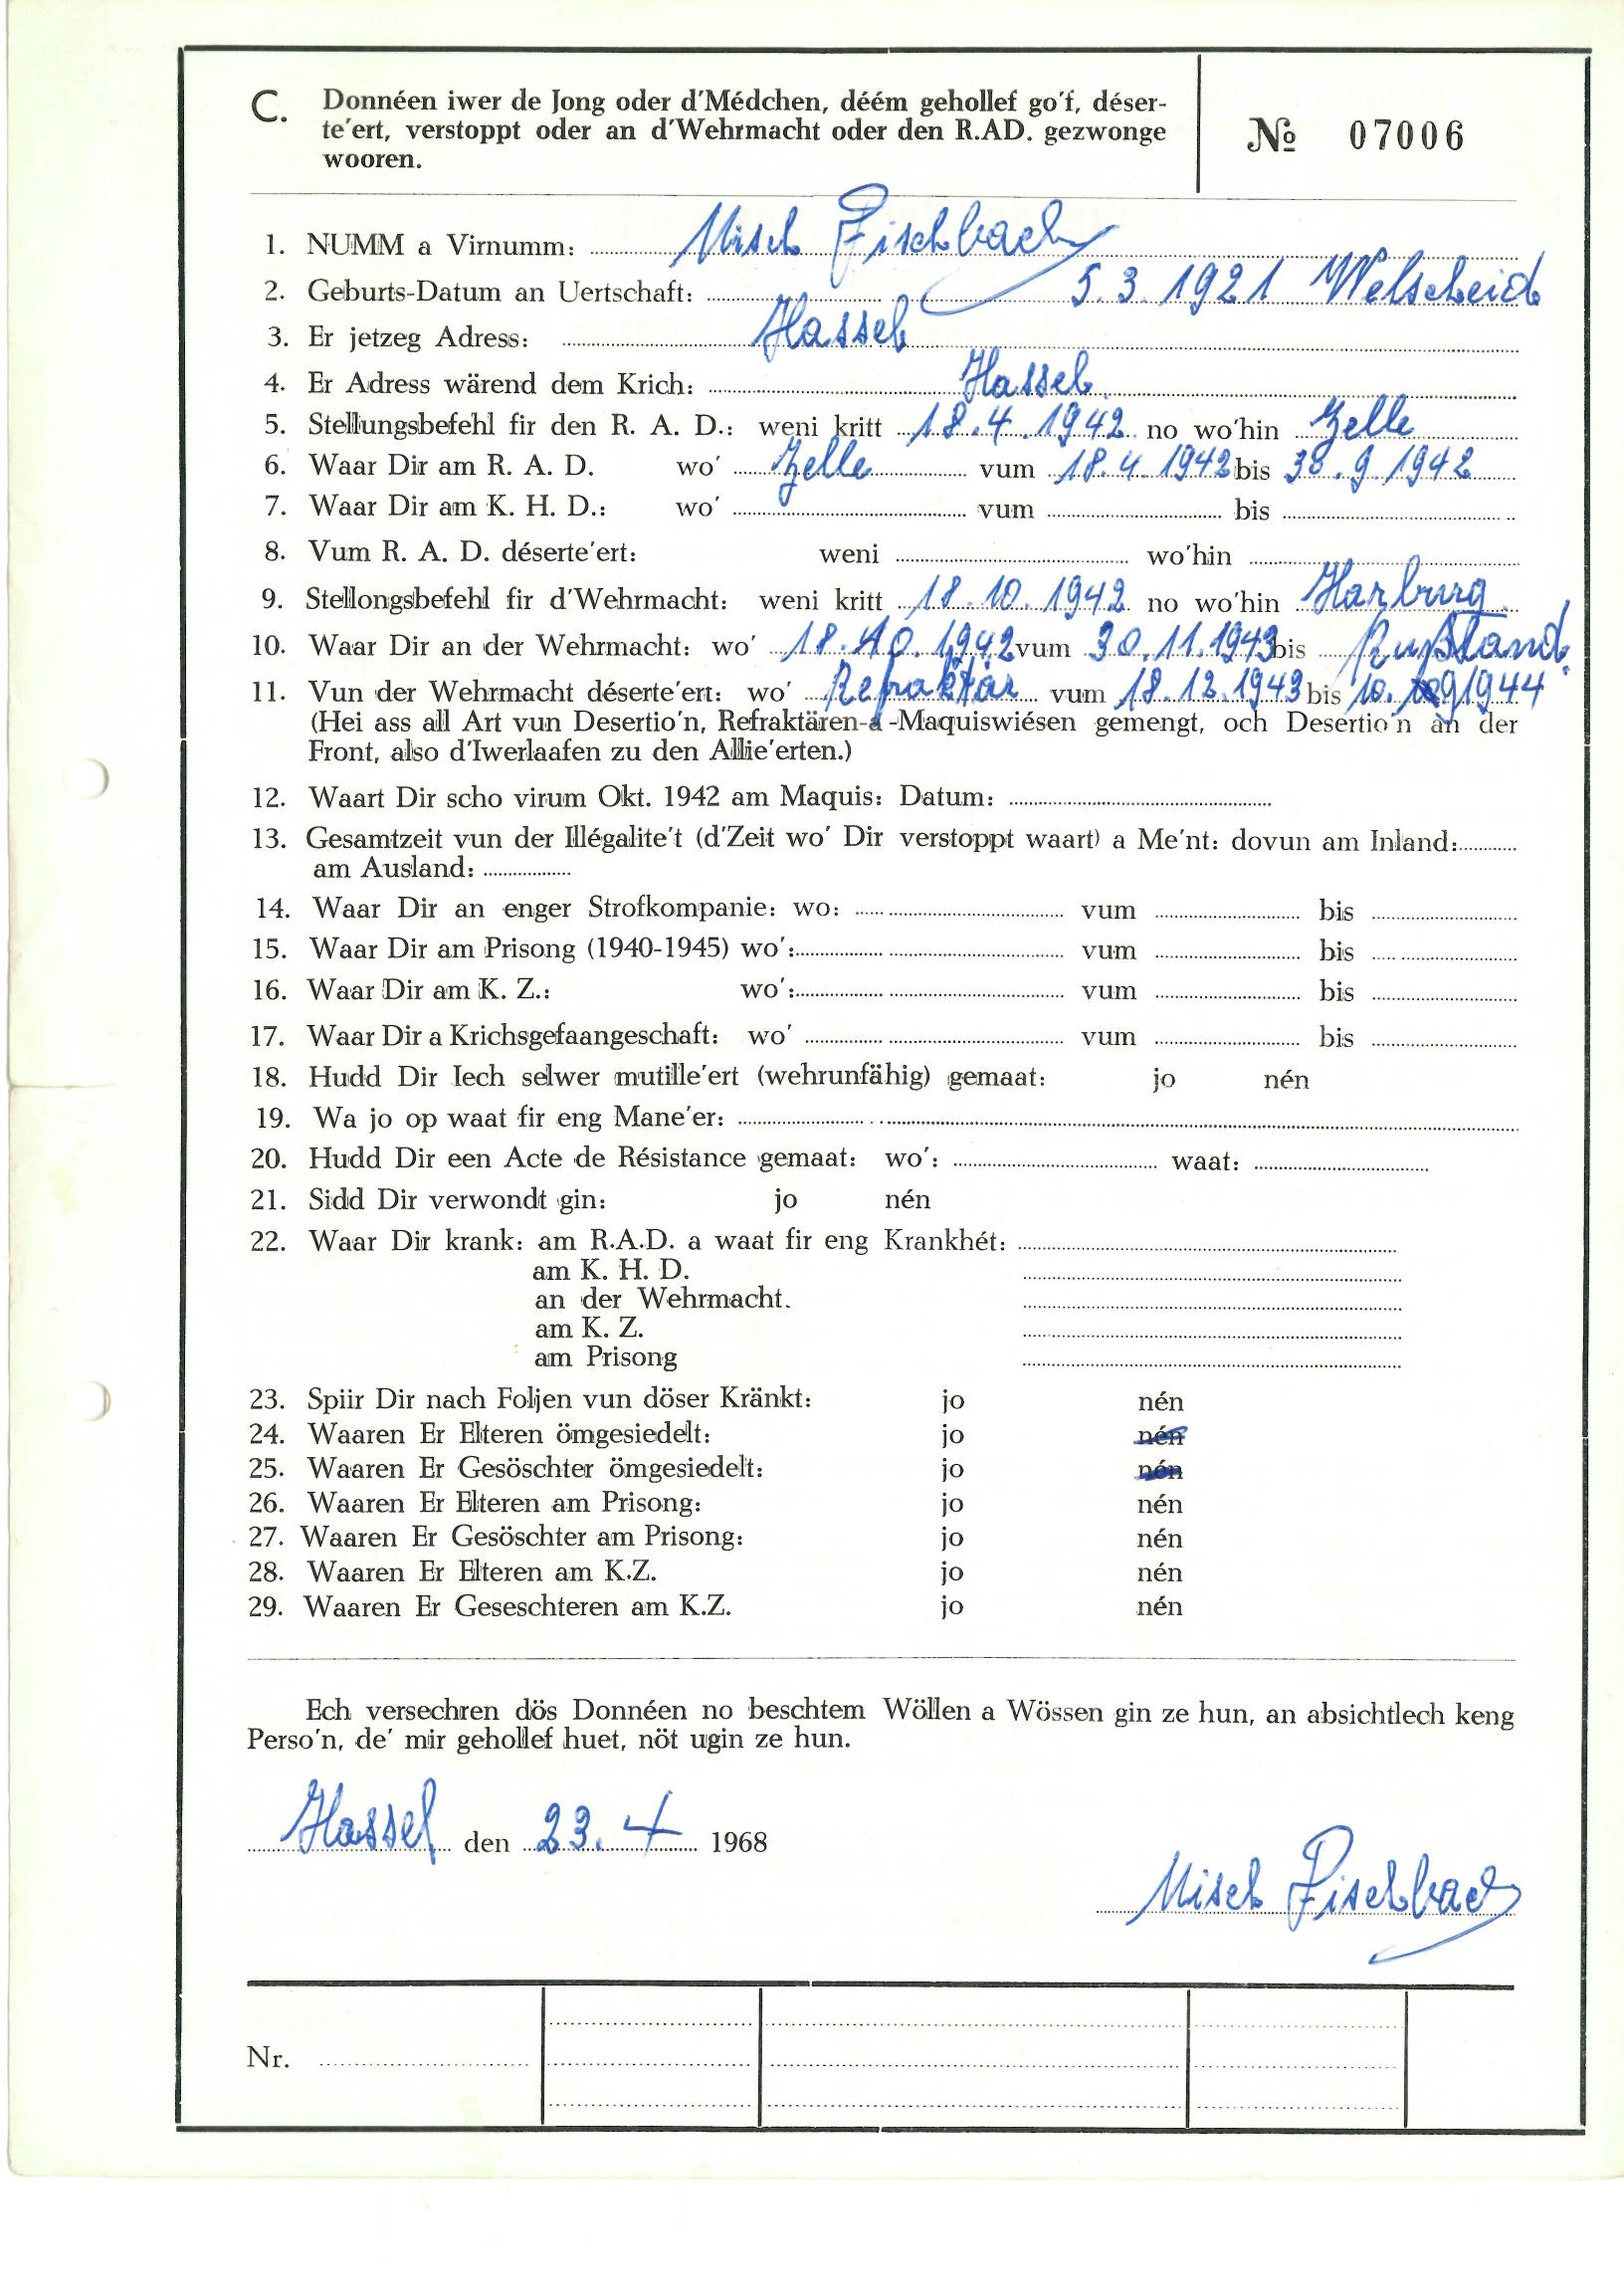 C. Donnéen iwer de Jong oder d'Médchen, déém gehollef go'f, déser-
te'ert, verstoppt oder an d'Wehrmacht oder den R.AD. gezwonge
wooren.
№ 07006
1. NUMM a Virnumm: Misch Fischbach
2. Geburts-Datum an Uertschaft: 5.3.1921 Welscheid
3. Er jetzeg Adress: Hassel
4. Er Adress wärend dem Krich: Hassel
5. Stellungsbefehl fir den R. A. D.: weni kritt 18.4.1942 no wo'hin Zelle
6. Waar Dir am R. A. D. wo' Zelle vum 18.4.1942 bis 30.9.1942
7. Waar Dir am K. H. D.: wo' vum bis
8. Vum R. A. D. déserte'ert: weni wo'hin
9. Stellongsbefehl fir d'Wehrmacht: weni kritt 18.10.1942 no wo'hin Harburg
10. Waar Dir an der Wehrmacht: wo' 18.10.1942 vum 30.11.1943 bis Rußland
11. Vun der Wehrmacht déserte'ert: wo' Refraktär vum 18.12.1943 bis 10. 9 1944
(Hei ass all Art vun Desertio'n, Refraktären-a -Maquiswiésen gemengt, och Desertio'n an der
Front, also d'Iwerlaafen zu den Allie'erten.)
12. Waart Dir scho virum Okt. 1942 am Maquis: Datum:
13. Gesamtzeit vun der Illégalite't (d'Zeit wo' Dir verstoppt waart) a Me'nt: dovun am Inland:
am Ausland:
14. Waar Dir an enger Strofkompanie: wo: vum bis
15. Waar Dir am Prisong (1940-1945) wo': vum bis
16. Waar Dir am K. Z.: wo': vum bis
17. Waar Dir a Krichsgefaangeschaft: wo' vum bis
18. Hudd Dir Iech selwer mutille'ert (wehrunfähig) gemaat: jo nén
19. Wa jo op waat fir eng Mane'er:
20. Hudd Dir een Acte de Résistance gemaat: wo': waat:
21. Sidd Dir verwondt gin: jo nén
22. Waar Dir krank: am R.A.D. a waat fir eng Krankhét:
am K. H. D.
an der Wehrmacht.
am K. Z.
am Prisong
23. Spiir Dir nach Foljen vun döser Kränkt: jo nén
24. Waaren Er Elteren ömgesiedelt: jo nén
25. Waaren Er Gesöschter ömgesiedelt: jo nén
26. Waaren Er Elteren am Prisong: jo nén
27. Waaren Er Gesöschter am Prisong: jo nén
28. Waaren Er Elteren am K.Z. jo nén
29. Waaren Er Geseschteren am K.Z. jo nén
Ech versechren dös Donnéen no beschtem Wöllen a Wössen gin ze hun, an absichtlech keng
Perso'n, de' mir gehollef huet, nöt ugin ze hun.
Hassel den 23.4 1968
Misch Fischbach
Nr.